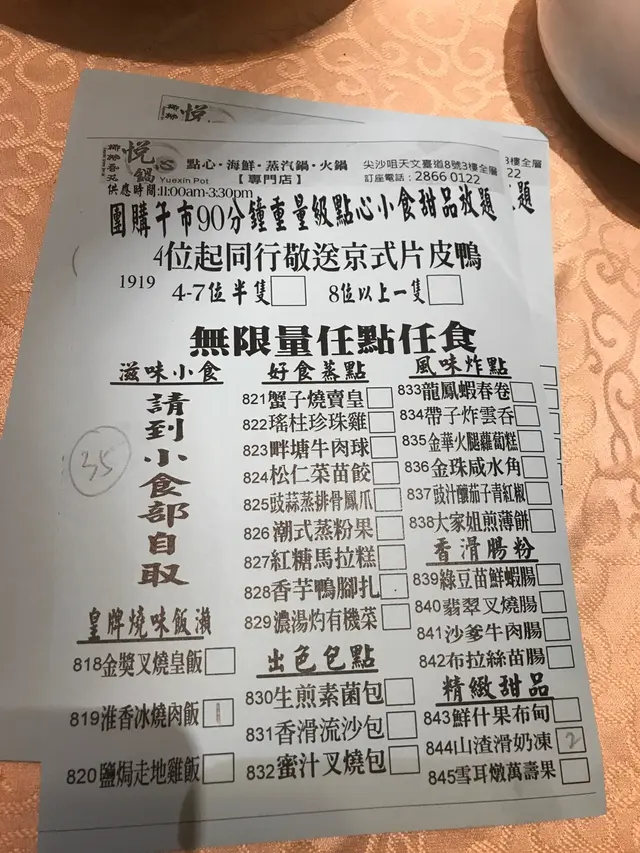 悅
悅心鍋
Yuexin Pot
點心·海鮮·蒸汽鍋·火鍋
【專門店】
尖沙咀天文臺道8號3樓全層
訂座電話:2866 0122
3樓全層
22
供應時間:11:00am-3:30pm
團購午市90分鐘重量級點心小食甜品放題
題
4位起同行敬送京式片皮鴨
1919
4-7位半隻
8位以上一隻
無限量任點任食
滋味小食
請到小食部自取
35
皇牌燒味飯瀨
818金獎叉燒皇飯
819淮香冰燒肉飯
820鹽焗走地雞飯
好食蒸點
821蟹子燒賣皇
822瑤柱珍珠雞
823畔塘牛肉球
824松仁菜苗餃
825豉蒜蒸排骨鳳爪
826潮式蒸粉果
827紅糖馬拉糕
828香芋鴨腳扎
829濃湯灼有機菜
出色包點
830生煎素菌包
831香滑流沙包
832蜜汁叉燒包
風味炸點
833龍鳳蝦春卷
834帶子炸雲吞
835金華火腿蘿蔔糕
836金珠咸水角
837豉汁釀茄子青紅椒
838大家姐煎薄餅
香滑腸粉
839綠豆苗鮮蝦腸
840翡翠叉燒腸
841沙爹牛肉腸
842布拉絲苗腸
精緻甜品
843鮮什果布甸
844山渣滑奶凍 2
845雪耳燉萬壽果